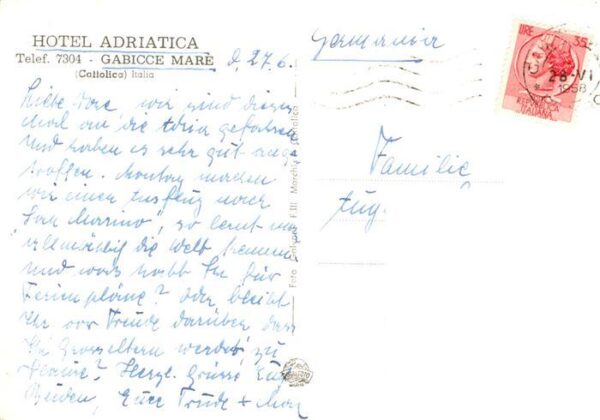 HOTEL ADRIATICA
Telef. 7304 - GABICCE MARE
(Cattolica) Italia
d. 27.6.
Liebe Dore, wir sind dieses
Mal an die Adria gefahren
und haben es sehr gut ange
troffen. Montag machen
wir einen Ausflug nach
"San Marino", so lernt man
allmählich die Welt kennen
und was habt Ihr für
Ferienpläne? Oder bleibt
Ihr vor Freude darüber dass
Ihr Grosseltern werdet, zu
Hause? Herzl. Grüsse Euch
Beiden, Eure Trude + Max
Germania
Familie
Aug.
LIRE 35
REPUBBLICA
ITALIANA
28-VI
1958